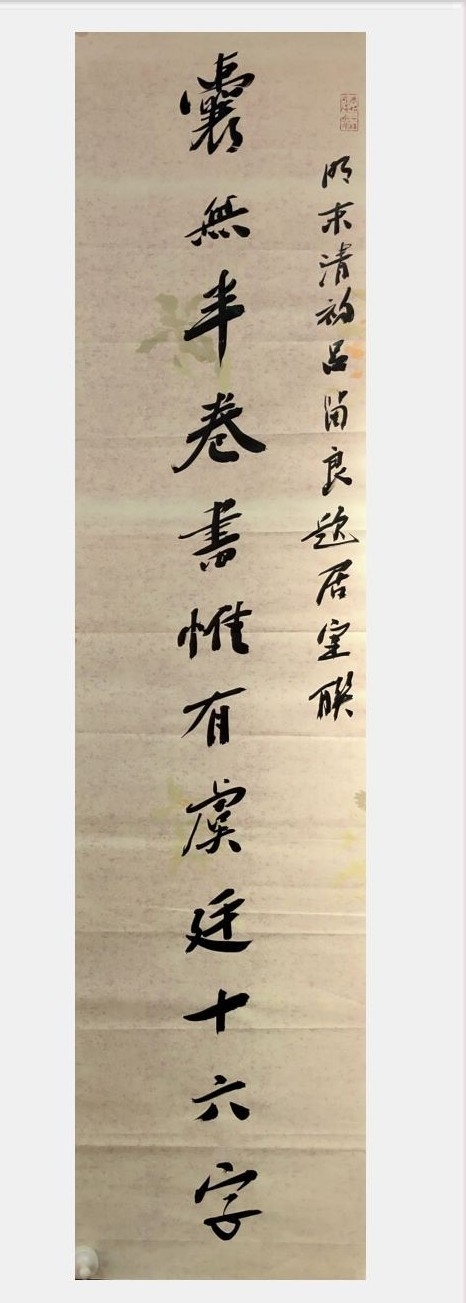 明末清初吕留良题居室联
囊無半卷書惟有虞廷十六字